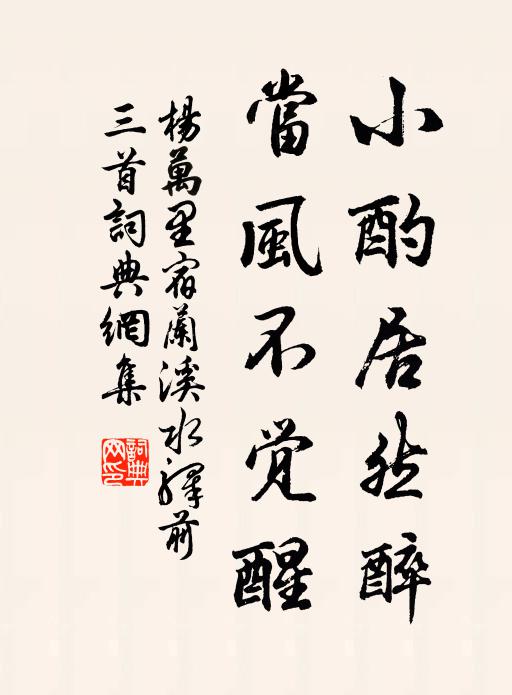 小酌居然醉
當風不覚醒
楊萬里宿蘭溪水驛前
三首詞典網集
詞典
网印